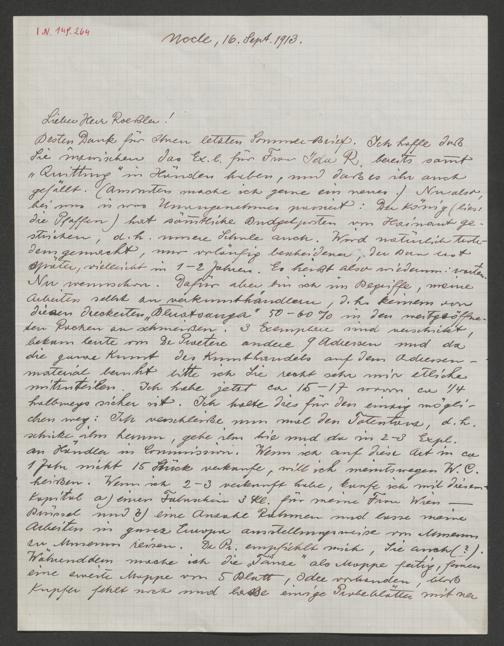 I.N. 149.264
Nocle, 16. Sept. 1913.
Lieber Herr Roessler!
Besten Dank für Ihren letzten Sommer-Brief. Ich hoffe daß
Sie inzwischen das Ex.l. für Frau Ida R. bereits samt
„Quittung" in Händen haben, und daß es ihr auch
gefällt. (Ansonsten mache ich gerne ein neues.) Nun also,
bei uns is was Unangenehmes passiert: Der König (bezw.
die Pfaffen) hat sämtliche Budgetposten von Hainaut ge-
strichen, d.h. unsere Schule auch. Wird natürlich trotz-
dem gemacht, nur vorläufig bescheidener, der Bau erst
später, vielleicht in 1-2 Jahren. Es heißt also wiederum: warten.
Na wennschon. Dafür aber bin ich im Begriffe, meine
Arbeiten selbst zu verkunsthändlern, d.h. keinem von
diesen 50-60% in den
Rachen zu schmeißen. 3 Exemplare sind verschickt,
bekam heute von De Praetere andere 9 Adressen und da
die ganze Kunst des Kunsthandels auf dem Adressen-
material beruht bitte ich Sie recht sehr mir etliche
mitzuteilen. Ich habe jetzt ca 15-17 wovon ca 1/4
halbwegs sicher ist. Ich halte dies für den einzig mögli-
chen weg: Ich verschleiße nun mal den Totentanz, d.h.
schicke ihn herum, gebe ihn hie und da in 2-3 Expl.
an Händler in Commission. Wenn ich auf diese Art in ca
1 Jahr nicht 15 Stück verkaufe, will ich meinetwegen W.C.
heißen. Wenn ich 2-3 verkauft habe, kaufe ich mit diesem
Kapital a) einen 3 Kl. für meine Frau Wien —
Brüssel und b) eine Anzahl Rahmen und lasse meine
Arbeiten in ganz Europa ausstellungsweise von Museum
zu Museum reisen. De Pr. empfiehlt mich, Sie auch (?).
Währenddem mache ich die „Tänze" als Mappe fertig, ferner
eine zweite Mappe von 5 Blatt, Idee vorhanden, bloß
Kupfer fehlt noch und lasse einige Probeblätter mit der